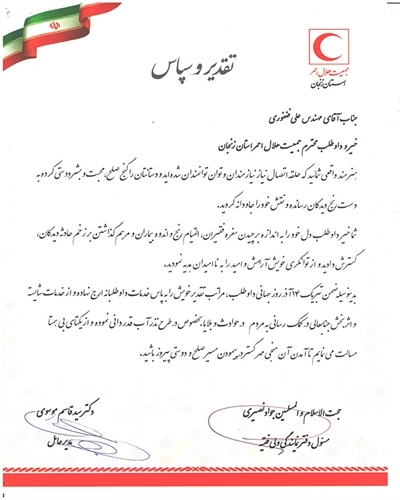 جمعیت هلال احمر
استان زنجان
تقدیر و سپاس
جناب آقای مهندس علی غفوری
خیر و داوطلب محترم جمعیت هلال احمر استان زنجان
هنرمند واقعی شمائید که حلقه اتصال نیاز نیازمندان و توان توانمندان شده اید و دستانتان را گنج صلح، محبت و بشردوستی کرده به
دست رنج دیدگان رسانده و نقش خود را جاودانه کردید.
شما خیر داوطلب دل خود را به اندازه برچیدن سفره فقیران، التیام رنج و اندوه بیماران و مرهم گذاشتن بر زخم حادثه دیدگان،
گسترش دادید و از توانگری خویش آرامش و امید را به ناامیدان هدیه نمودید.
بدینوسیله ضمن تبریک ۱۴ آذر روز جهانی داوطلب، مراتب تقدیر خویش را به پاس خدمات داوطلبانه ارج نهاده و از خدمات شایسته
و اثربخش جنابعالی در کمک رسانی به مردم در حوادث و بلایا، بخصوص در طرح نذر آب قدردانی نموده و از یکتای بی همتا
مسالت می نمایم تا آمدن آن منجی مهر گستر در پیمودن مسیر صلح و دوستی پیروز باشید.
حجت الاسلام و المسلمین جواد نصیری
مسئول دفتر نمایندگی ولی فقیه
دکتر سید قاسم موسوی
مدیرعامل